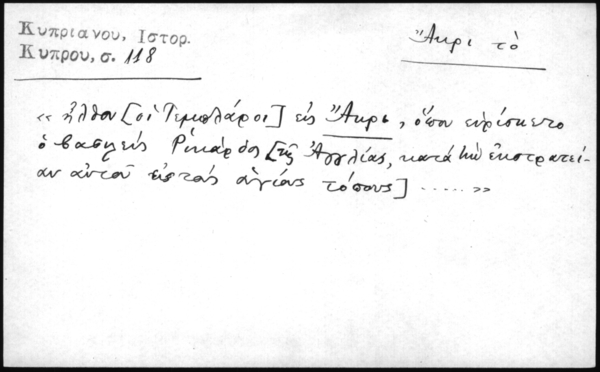 Κυπριανου, Ιστορ.
Κυπρου, σ. 118
Ἄκρι τὸ
« ἦλθον [οἱ Τεμπλάροι] εἰς Ἄκρι, ὅπου εὑρίσκετο
ὁ βασιλεὺς Ρικάρδος [τῆς Ἀγγλίας, κατὰ τὴν ἐκστρατεί-
αν αὐτοῦ εἰς τοὺς ἁγίους τόπους] ..... »